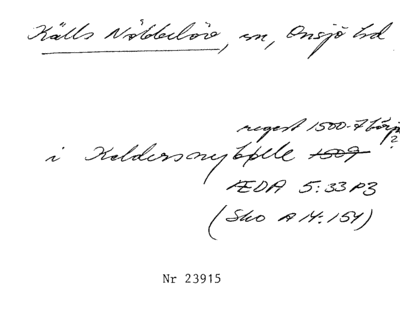 Källs Nöbbelöv, sn, Onsjö hd
regest 1500-t börj
?
i Keldersnybble 1509
ÆDA 5:33 P3
(Sko A 14:154)
Nr 23915